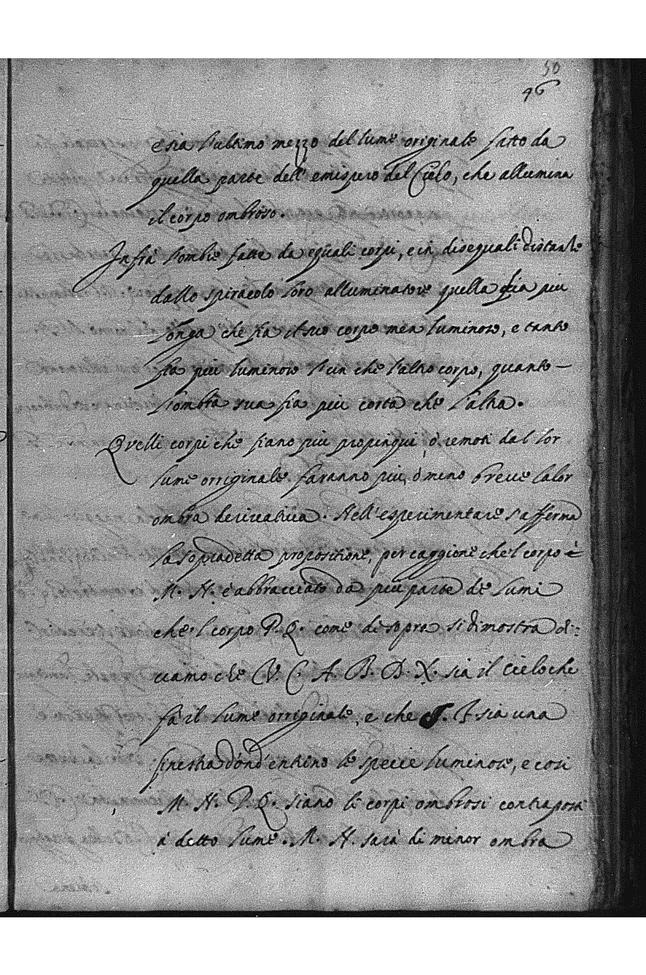 50
46
e sia l'ultimo mezzo del lume originale fatto da
quella parte dell'emispero del Cielo, che allumina
il corpo ombroso.
Infrà l'ombre fatte da equali corpi, e in disequali distantie
dallo spiracolo loro alluminatore quella fia più
longa che fia il suo corpo men luminoso, e tanto
fia più luminoso l'un che l'altro corpo, quanto
l'ombra sua fia più corta che l'altra.
Quelli corpi che siano più propinqui, ò remoti dal lor
lume orriginale. faranno più, ò meno breve la lor
ombra derivativa. Nell'esperimentare s'afferma
la sopradetta propositione, per caggione che'l corpo
M. N. è abbracciato da più parte de lumi
che'l corpo P. Q. come di sopra si dimostra di-
ciamo che V. C. A. B. D. X. sia il cielo che
fà il lume orriginale, e che S. T sia una
finestra dond'entrino le specie luminose, e così
M. N. P. Q. siano li corpi ombrosi contraposti
à detto lume. M. N. sarà di minor ombra